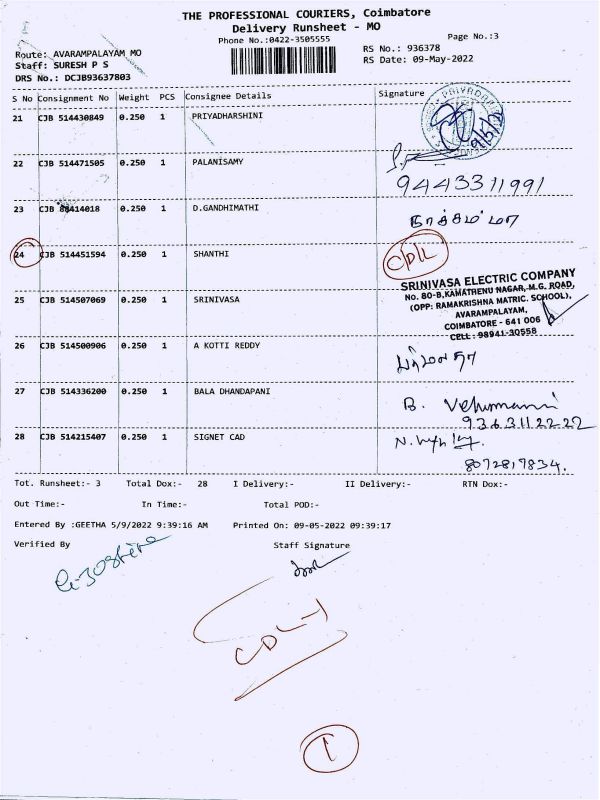 THE PROFESSIONAL COURIERS, Coimbatore
Delivery Runsheet - MO
Phone No.:0422-3505555
Page No.:3
Route: AVARAMPALAYAM MO
RS No.: 936378
Staff: SURESH P S
RS Date: 09-May-2022
DRS No.: DCJB93637803
S No Consignment No Weight PCS Consignee Details Signature
21 CJB 514430849 0.250 1 PRIYADHARSHINI
22 CJB 514471505 0.250 1 PALANISAMY
9443311991
23 CJB 80414018 0.250 1 D.GANDHIMATHI
24 CJB 514451594 0.250 1 SHANTHI
CDL
SRINIVASA ELECTRIC COMPANY
No. 80-B, KAMATHENU NAGAR, M.G. ROAD,
(OPP: RAMAKRISHNA MATRIC. SCHOOL),
AVARAMPALAYAM,
COIMBATORE - 641 006
CELL : 98941-30558
25 CJB 514507069 0.250 1 SRINIVASA
26 CJB 514500906 0.250 1 A KOTTI REDDY
27 CJB 514336200 0.250 1 BALA DHANDAPANI
B.
9363112222
28 CJB 514215407 0.250 1 SIGNET CAD
8072817834.
Tot. Runsheet:- 3 Total Dox:- 28 I Delivery:- II Delivery:- RTN Dox:-
Out Time:- In Time:- Total POD:-
Entered By :GEETHA 5/9/2022 9:39:16 AM Printed On: 09-05-2022 09:39:17
Verified By Staff Signature
CDL-1
1